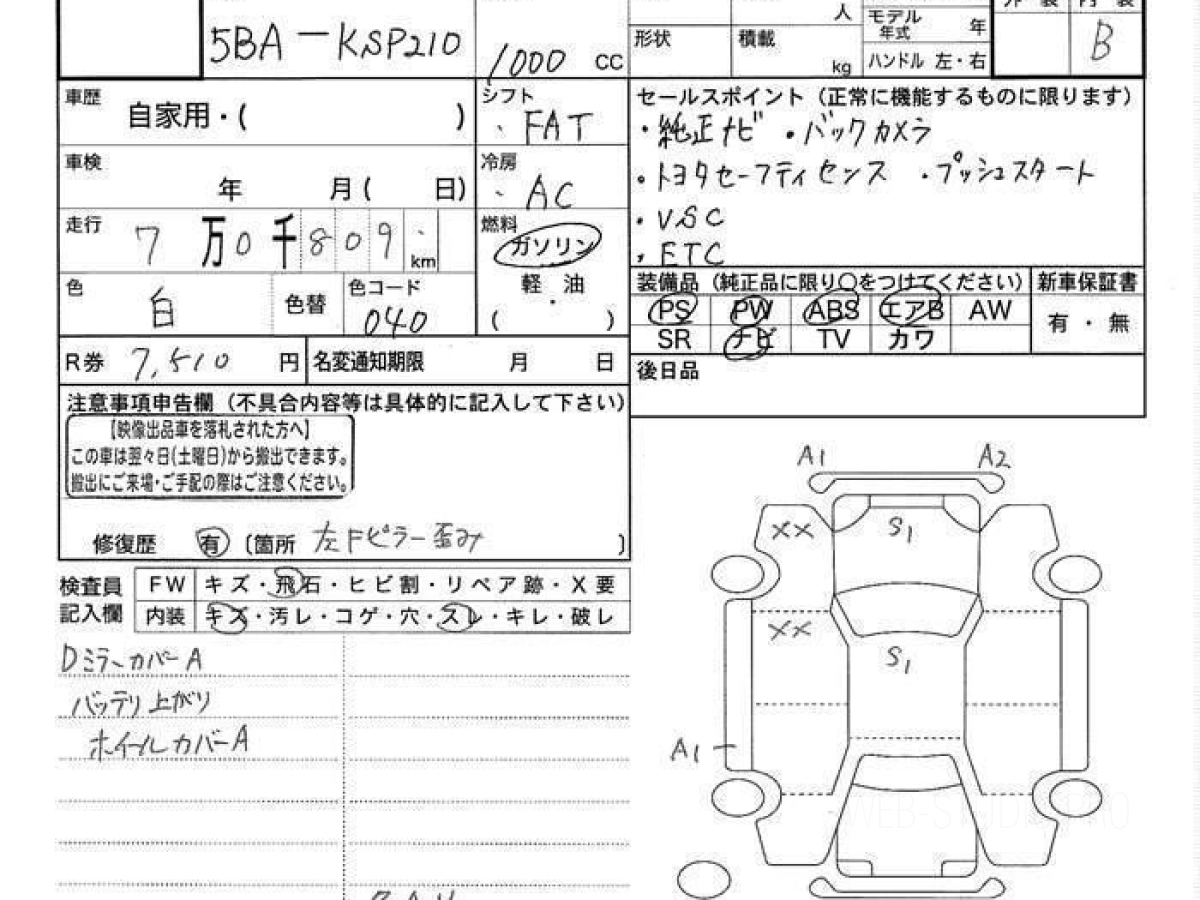 5BA-KSP210
1000 cc
人
形状
積載
kg
モデル年式
年
ハンドル 左・右
B
車歴
自家用・( )
シフト
、FAT
車検
年 月( 日)
冷房
、AC
走行
7万0千809 km
燃料
ガソリン
軽・油
( )
色
白
色替
色コード
040
R券 7,510 円
名変通知期限 月 日
セールスポイント (正常に機能するものに限ります)
・純正ナビ ・バックカメラ
・トヨタセーフティセンス ・プッシュスタート
・VSC
・ETC
装備品 (純正品に限り○をつけてください)
新車保証書
PS PW ABS エアB AW
有・無
SR ナビ TV カワ
後日品
注意事項申告欄 (不具合内容等は具体的に記入して下さい)
【映像出品車を落札された方へ】
この車は翌々日(土曜日)から搬出できます。
搬出にご来場・ご手配の際はご注意ください。
修復歴 有 〔箇所 左Fピラー歪み 〕
検査員記入欄
FW キズ・飛石・ヒビ割・リペア跡・X要
内装 キズ・汚レ・コゲ・穴・スレ・キレ・破レ
Dミラーカバー A
バッテリ上がり
ホイールカバー A
A1 A2
XX S1
XX
S1
A1
WEB-STUDIO.RO